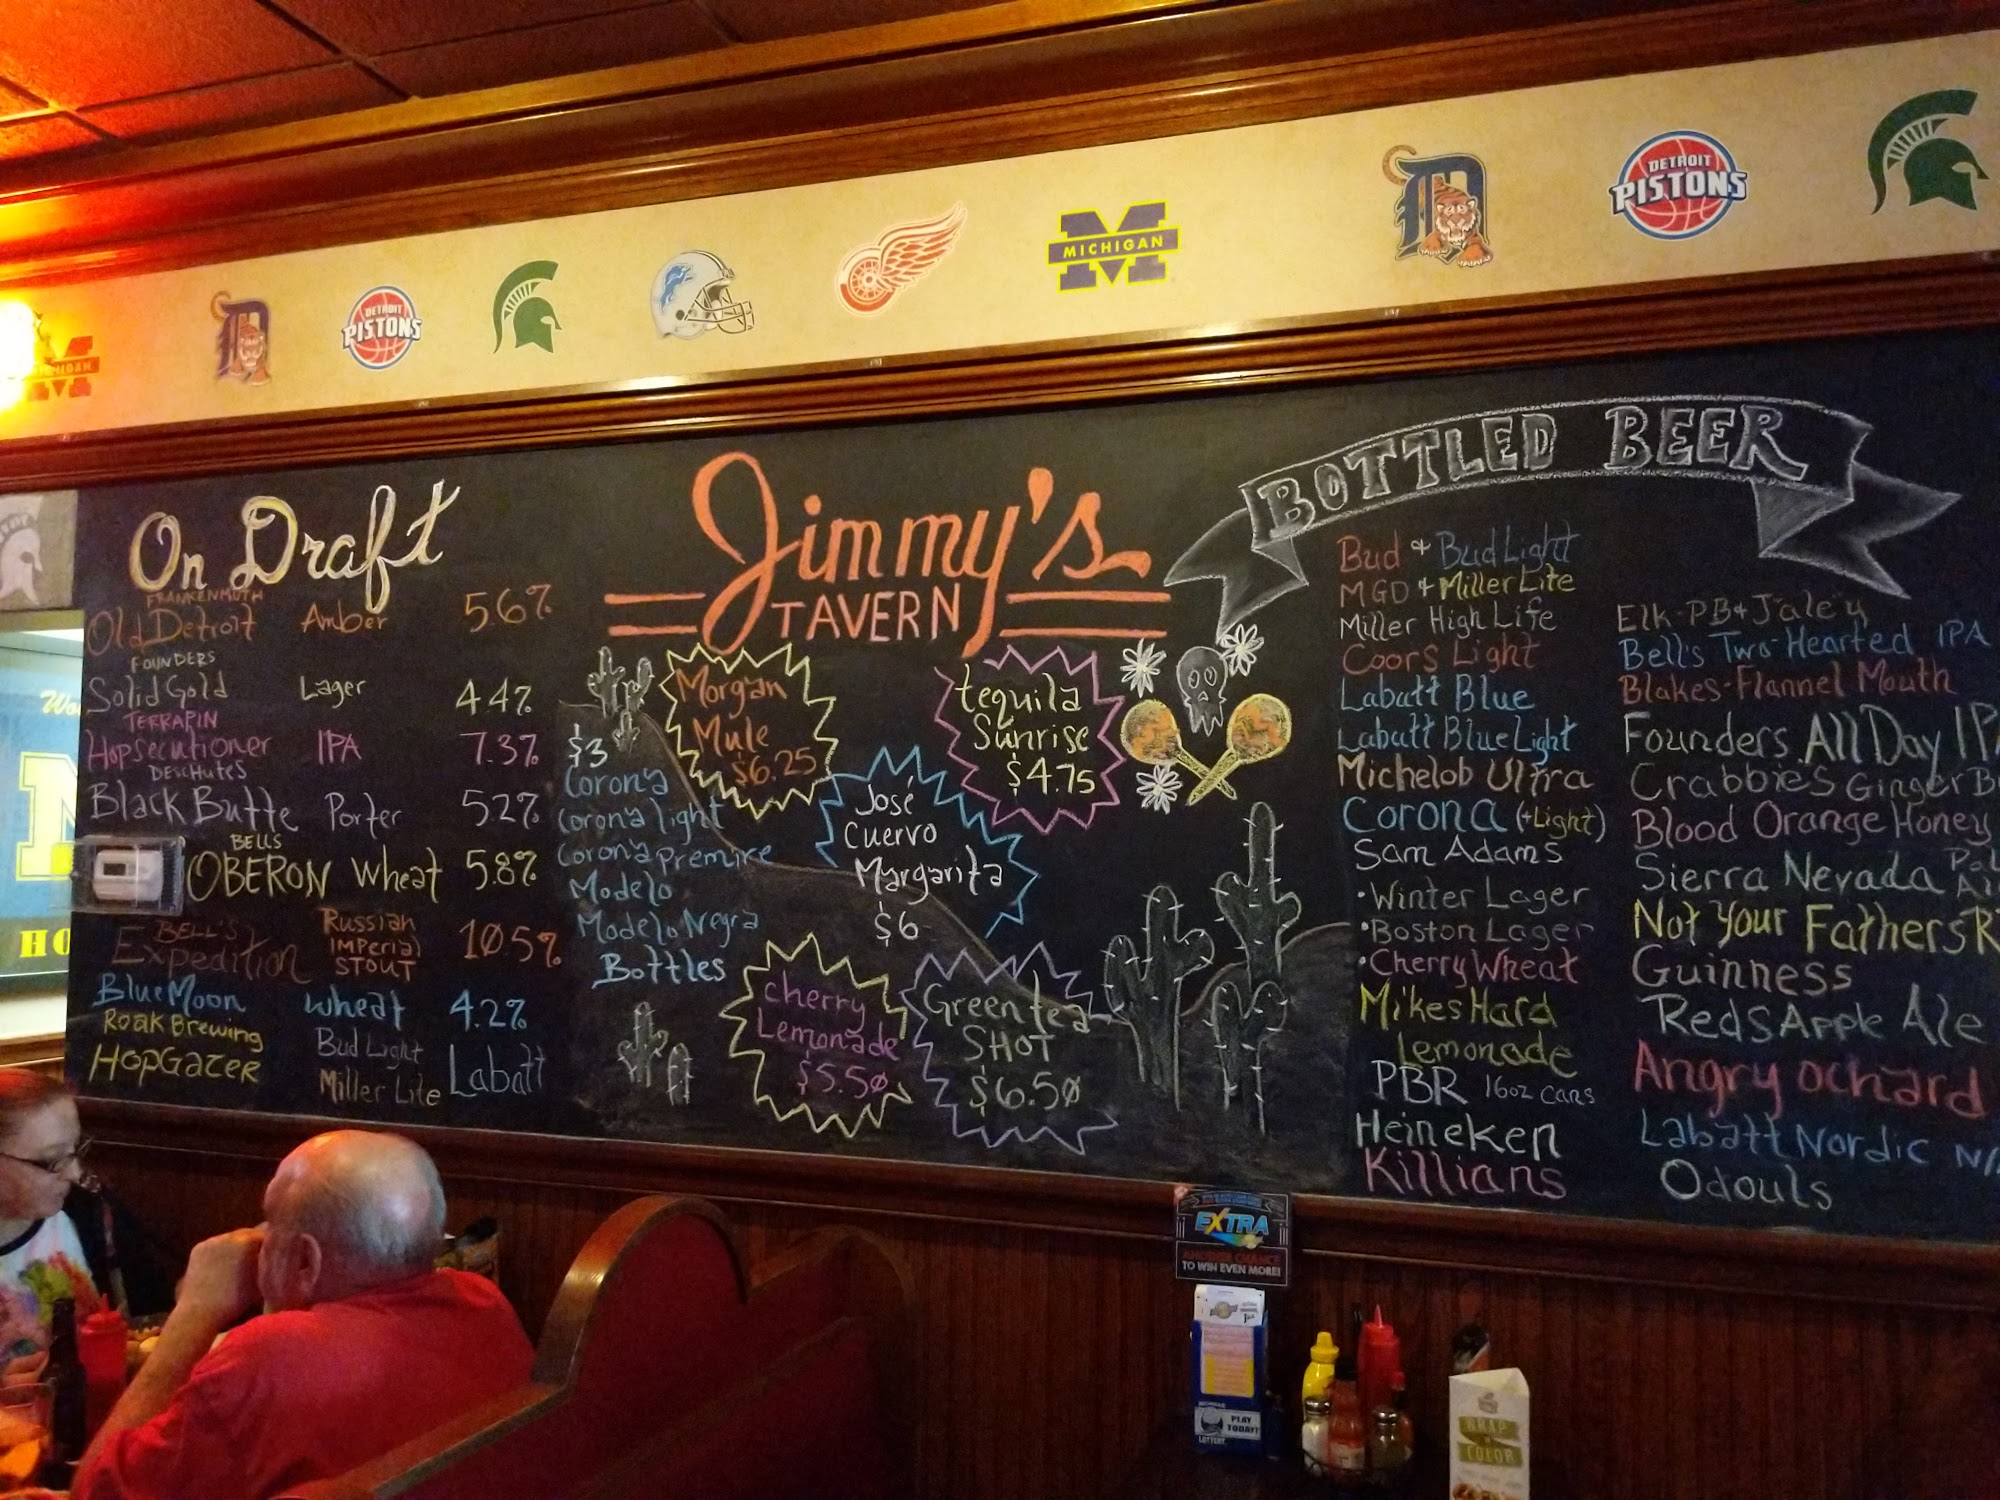 DETROIT
PISTONS
MICHIGAN
DETROIT
PISTONS
On Draft
FRANKENMUTH
Old Detroit Amber 5.6%
FOUNDERS
Solid Gold Lager 4.4%
TERRAPIN
Hopsecutioner IPA 7.3%
DESCHUTES
Black Butte Porter 5.2%
BELLS
OBERON Wheat 5.8%
BELL'S
Expedition Russian IMPerial STOUT 10.5%
Blue Moon Wheat 4.2%
Roak Brewing
HopGacer
Bud Light Labatt
Miller Lite
Jimmy's
TAVERN
Morgan
Mule
$6.25
tequila
Sunrise
$4.75
José
Cuervo
Margarita
$6
Cherry
Lemonade
$5.50
Green tea
SHOT
$6.50
$3
Corona
Corona light
Corona Premire
Modelo
Modelo Negra
Bottles
BOTTLED BEER
Bud + Bud Light
MGD + Miller Lite
Miller High Life
Coors Light
Labatt Blue
Labatt Blue Light
Michelob Ultra
Corona (+Light)
Sam Adams
•Winter Lager
•Boston Lager
•Cherry Wheat
Mikes Hard
Lemonade
PBR 16oz cans
Heineken
Killians
Elk-PB+J"ale"y
Bell's Two-Hearted IPA
Blakes-Flannel Mouth
Founders All Day IP
Crabbies Ginger B
Blood Orange Honey
Sierra Nevada
Not Your Fathers R
Guinness
Reds Apple Ale
Angry Ochard
Labatt Nordic N/
Odouls
EXTRA
ANOTHER CHANCE
TO WIN EVEN MORE!
PLAY
TODAY!
LOTTERY
WRAP
COLOR
HO